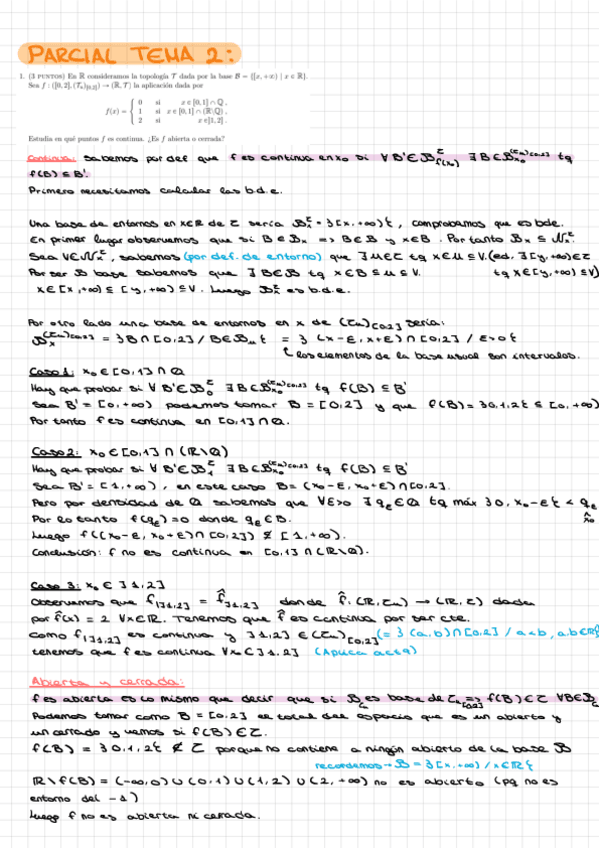 PARCIAL TEMA 2:
1. (3 PUNTOS) En ℝ consideramos la topología 𝒯 dada por la base ℬ = {[x, +∞) | x ∈ ℝ}.
Sea f : ([0, 2], (𝒯ᵤ)[0,2]) → (ℝ, 𝒯) la aplicación dada por
f(x) = { 0 si x ∈ [0, 1] ∩ ℚ ,
1 si x ∈ [0, 1] ∩ (ℝ\ℚ) ,
2 si x ∈]1, 2] .
Estudia en qué puntos f es continua. ¿Es f abierta o cerrada?
Continua: Sabemos por def que f es continua en x₀ si ∀ B'∈ℬ^τ_f(x₀) ∃ B∈ℬ_x₀^(τᵤ)[0,2] tq
f(B) ⊆ B'
Primero necesitamos calcular las b.d.e.
Una base de entornos en x∈ℝ de τ sería ℬ_x^τ = {[x, +∞)}, comprobamos que es bde.
En primer lugar observemos que si B∈ℬ_x => B∈ℬ y x∈B. Por tanto ℬ_x ⊆ 𝒩_x^τ.
Sea V∈𝒩_x^τ, sabemos (por def. de entorno) que ∃ U∈τ tq x∈U ⊆ V. (ed, ∃ [y, +∞)∈τ
Por ser ℬ base sabemos que ∃ B∈ℬ tq x∈B ⊆ U ⊆ V. tq x∈[y, +∞) ⊆ V)
x∈[x, +∞) ⊆ [y, +∞) ⊆ V. Luego ℬ_x^τ es b.d.e.
Por otro lado una base de entornos en x de (τᵤ)[0,2] sería:
ℬ_x^(τᵤ)[0,2] = {B∩[0,2] / B∈ℬᵤ} = {(x-ε, x+ε)∩[0,2] / ε>0}
los elementos de la base usual son intervalos.
Caso 1: x₀∈[0,1]∩ℚ
Hay que probar si ∀ B'∈ℬ₀^τ ∃ B∈ℬ_x₀^(τᵤ)[0,2] tq f(B) ⊆ B'
Sea B' = [0, +∞) podemos tomar B = [0,2] y que f(B) = {0,1,2} ⊆ [0, +∞)
Por tanto f es continua en [0,1]∩ℚ.
Caso 2: x₀∈[0,1]∩(ℝ\ℚ)
Hay que probar si ∀ B'∈ℬ₁^τ ∃ B∈ℬ_x₀^(τᵤ)[0,2] tq f(B) ⊆ B'
Sea B' = [1, +∞), en este caso B = (x₀-ε, x₀+ε)∩[0,2].
Pero por densidad de ℚ sabemos que ∀ε>0 ∃ q_ε∈ℚ tq máx {0, x₀-ε} < q_ε
Por lo tanto f(q_ε) = 0 donde q_ε∈B. < x₀
Luego f((x₀-ε, x₀+ε)∩[0,2]) ⊄ [1, +∞).
Conclusión: f no es continua en [0,1]∩(ℝ\ℚ).
Caso 3: x₀∈]1,2]
Observamos que f|]1,2] = f̂|]1,2] donde f̂: (ℝ, τᵤ) → (ℝ, τ) dada
por f̂(x) = 2 ∀x∈ℝ. Tenemos que f̂ es continua por ser cte.
Como f|]1,2] es continua y ]1,2]∈(τᵤ)[0,2] (= {(a,b)∩[0,2] / a<b, a,b∈ℝ}
tenemos que f es continua ∀x∈]1,2] (Aplica acta)
Abierta y cerrada:
f es abierta es lo mismo que decir que si ℬᵤ es base de τᵤ[0,2] => f(B)∈τ ∀B∈ℬᵤ
Podemos tomar como B = [0,2] el total del espacio que es un abierto y
un cerrado y vemos si f(B)∈τ.
f(B) = {0,1,2} ∉ τ porque no contiene a ningún abierto de la base ℬ
recordemos → ℬ = {[x, +∞) / x∈ℝ}
ℝ\f(B) = (-∞,0)∪(0,1)∪(1,2)∪(2,+∞) no es abierto (pq no es
entorno del -1)
Luego f no es abierta ni cerrada.